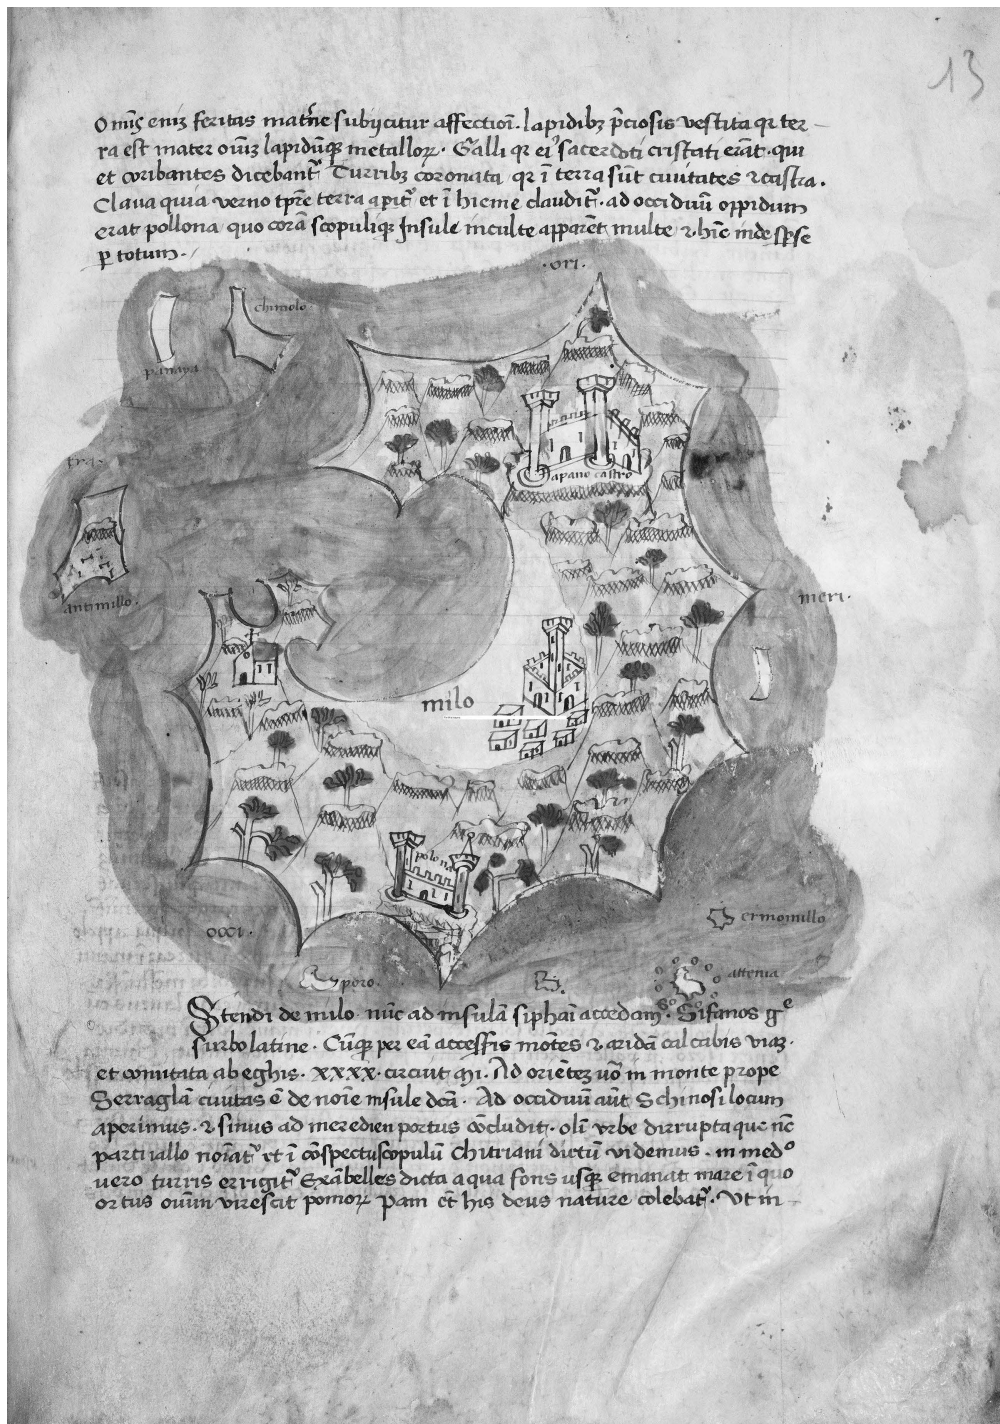 13
O mīs eniz feritas matr̄ne subijcitur affectiōi. lapidibꝫ p̄ciosis vestita qꝛ ter-
ra est mater oīuz lapidūqꝫ metalloꝝ. Galli qꝛ ei' sacerdoti cristati erāt. qui
et coribantes dicebant᷑ Turribꝫ coronata qꝛ ī terra sūt ciuitates ⁊ castra.
Claua quia verno tp̄re terra apit᷑ et ī hieme claudit᷑. ad occiduū oppidum
erat pollona quo corā scopuliqꝫ Insule inculte apparēt multe ⁊ hīc inde sp̄se
ꝑ totum.
.ori.
chimolo
panaya
tra.
apano castro
antimillo.
meri.
milo
polona
occi.
ermomillo
attenia
Stendi de milo nūc ad insulā siphāi accedam᷑. Sifanos gͤ
surbolatine. Cūqꝫ per eā accessis mōtes ⁊ aridā calcabis viaz.
et comitata ab eghis. xxxx. circuit mi. Ad oriētez uō in monte prope
Serraglā ciuitas ē de noīe insule dcā. Ad occiduū aūt Schinosi locum
aperimus. ⁊ sinus ad meredien portus cōcludit. olī vrbe dirrupta que nc̄
parti iallo noīat᷑ et ī cōspectu scopulū Chitriani dictū videmus. in medº
uero turris errigit᷑ Exābelles dicta aqua fons usqꝫ emanat mare ī quo
ortus ouūm virescit pomoꝝ Pam et̄ his deus nature colebat᷑. Vt in -